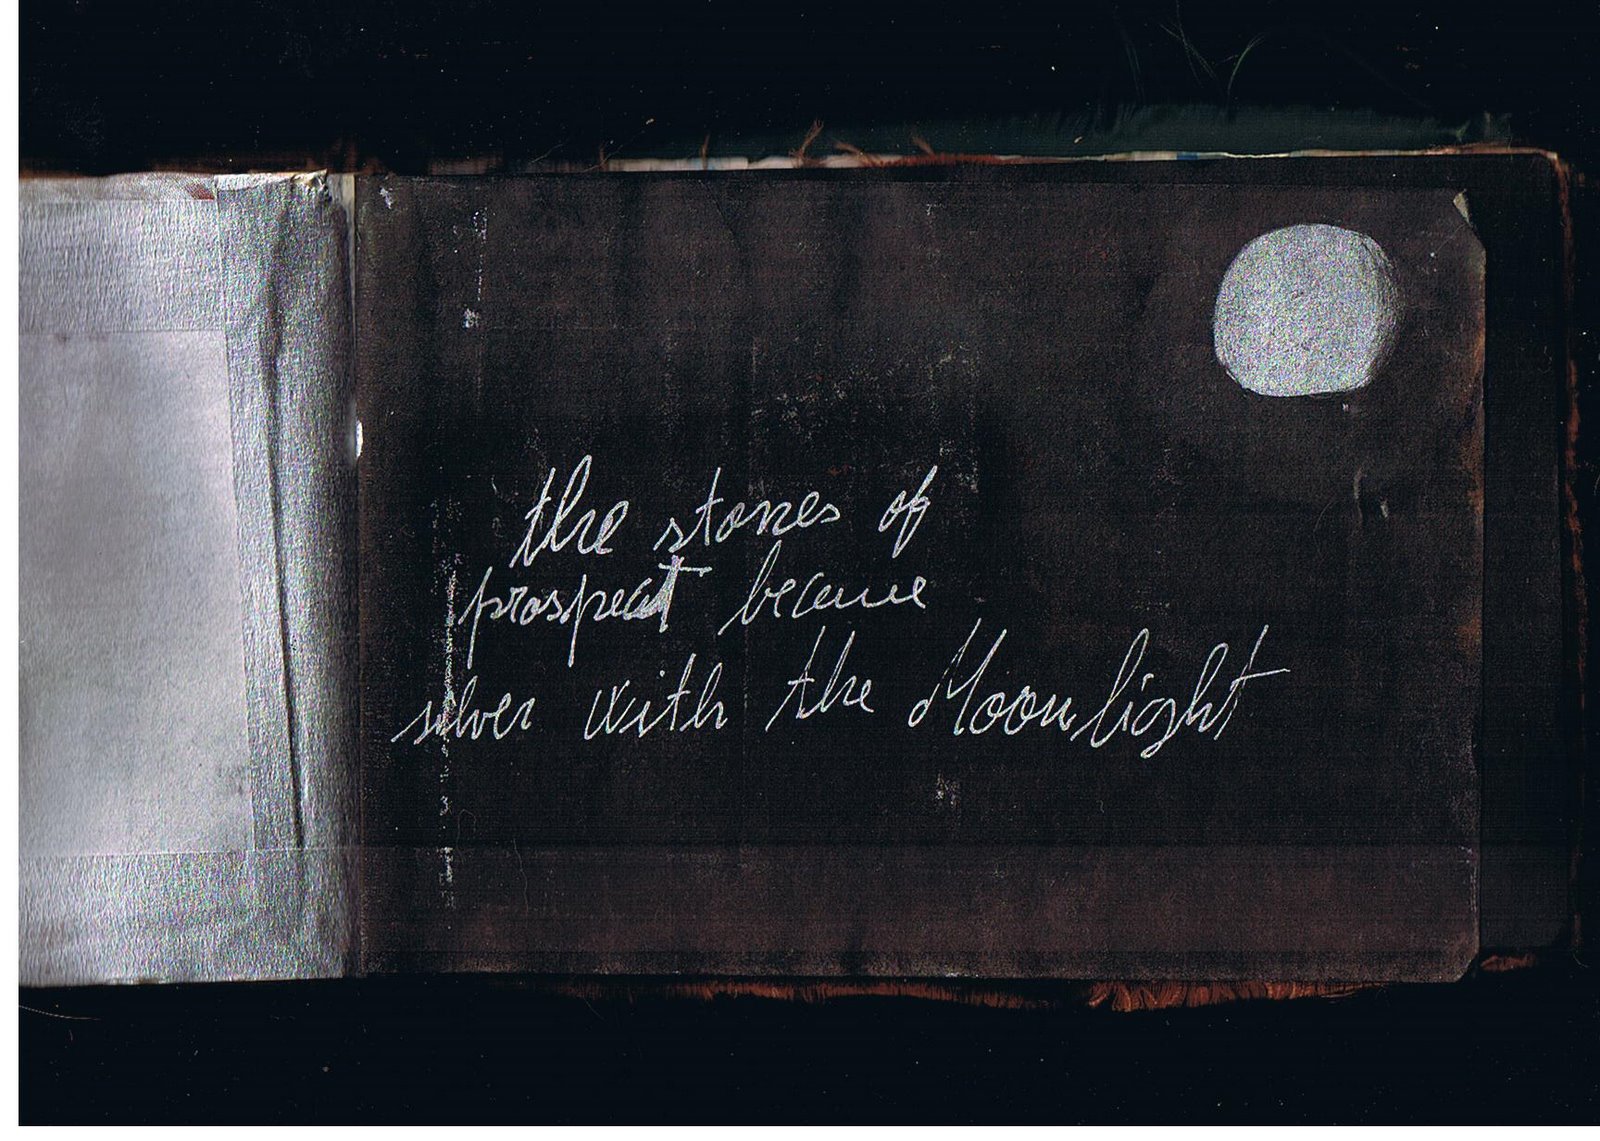 the stones of
prospect became
silver with the Moonlight